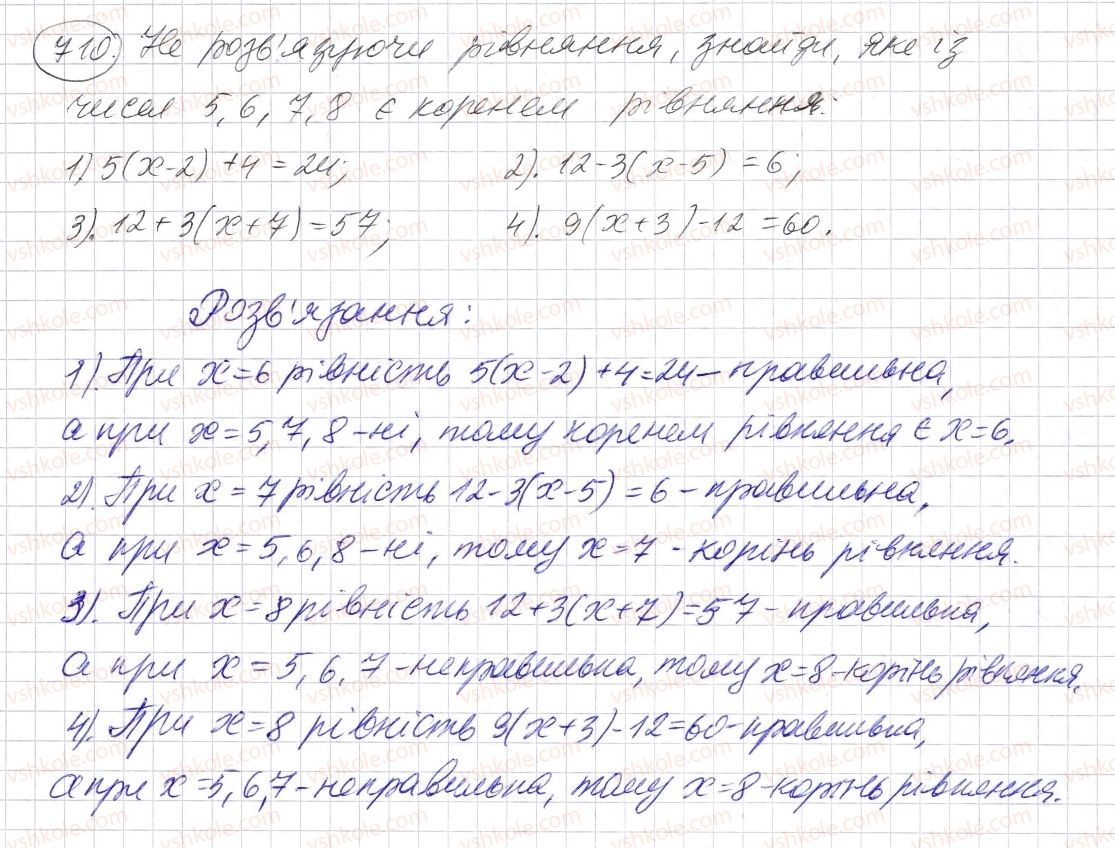 710. Не розв'язуючи рівняння, знайди, яке із
чисел 5, 6, 7, 8 є коренем рівняння:
1) 5(x-2)+4=24; 2). 12-3(x-5)=6;
3). 12+3(x+7)=57; 4). 9(x+3)-12=60.
Розв'язання:
1). При x=6 рівність 5(x-2)+4=24 - правильна,
а при x=5,7,8 - ні, тому коренем рівняння є x=6.
2). При x=7 рівність 12-3(x-5)=6 - правильна,
а при x=5,6,8 - ні, тому x=7 - корінь рівняння.
3). При x=8 рівність 12+3(x+7)=57 - правильна,
а при x=5,6,7 - неправильна, тому x=8 - корінь рівняння.
4). При x=8 рівність 9(x+3)-12=60 - правильна,
а при x=5,6,7 - неправильна, тому x=8 - корінь рівняння.